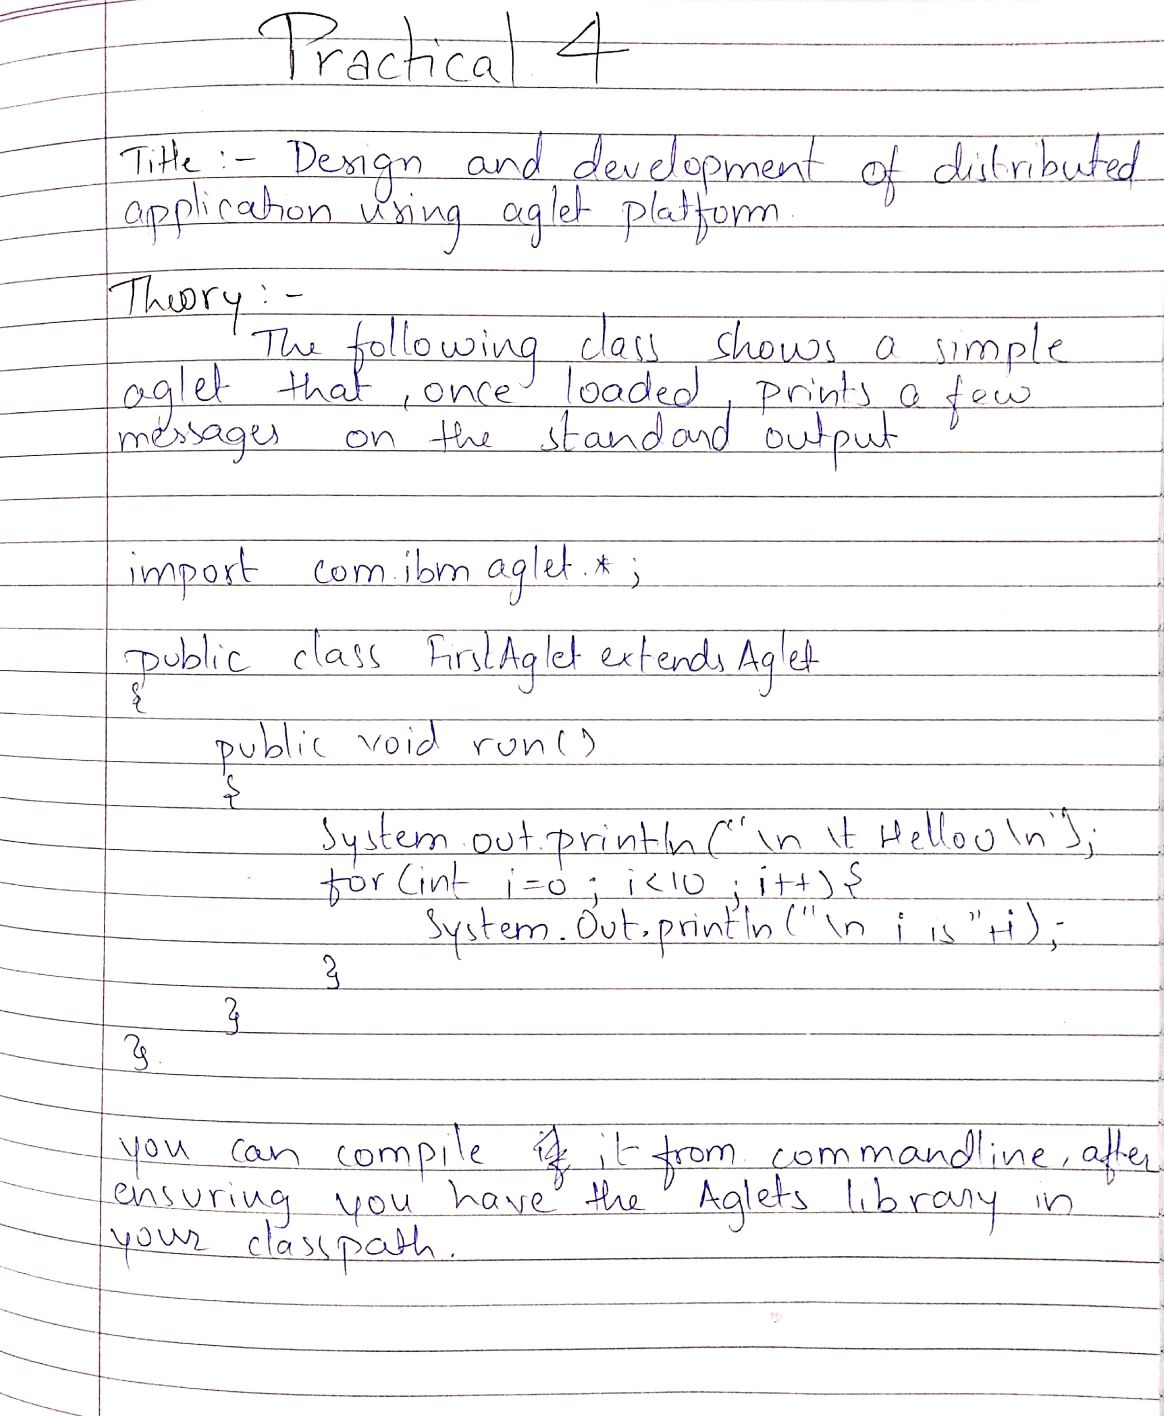 Practical 4
Title :- Design and development of distributed
application using aglet platform.
Theory :-
The following class shows a simple
aglet that, once loaded, prints a few
messages on the standard output
import com.ibm aglet.*;
public class FirstAglet extends Aglet
{
public void run()
{
System.out.println("\n \t Hello\n");
for(int i=0; i<10; i++){
System.Out.println("\n i is"+i);
}
}
}.
you can compile it from commandline, after
ensuring you have the Aglets library in
your classpath.